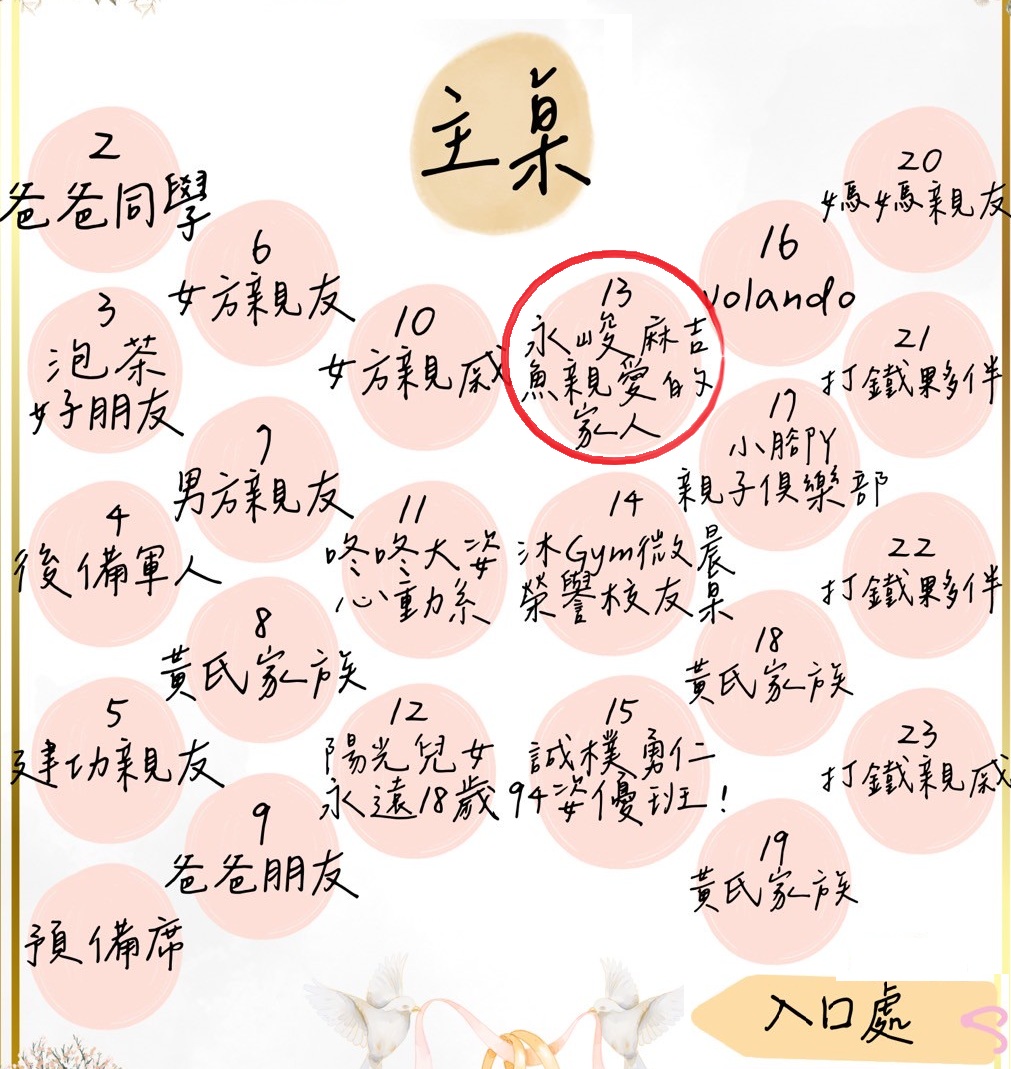 主桌
2
爸爸同學
3
泡茶
好子朋友
4
後備軍人
5
建功親友
預備席
6
女方親友
7
男方親友
8
黃氏家族
9
爸爸朋友
10
女方親戚
11
咚咚大姿
心動系
12
陽光兒女
永遠18歲
13
永峻麻吉
魚親愛的
家人
14
沐Gym微晨
榮譽校友杲
15
誠樸勇仁
94姿優班!
16
yolando
17
小腳丫
親子俱樂部
18
黃氏家族
19
黃氏家族
20
媽媽親友
21
打鐵夥伴
22
打鐵夥伴
23
打鐵親戚
入口處